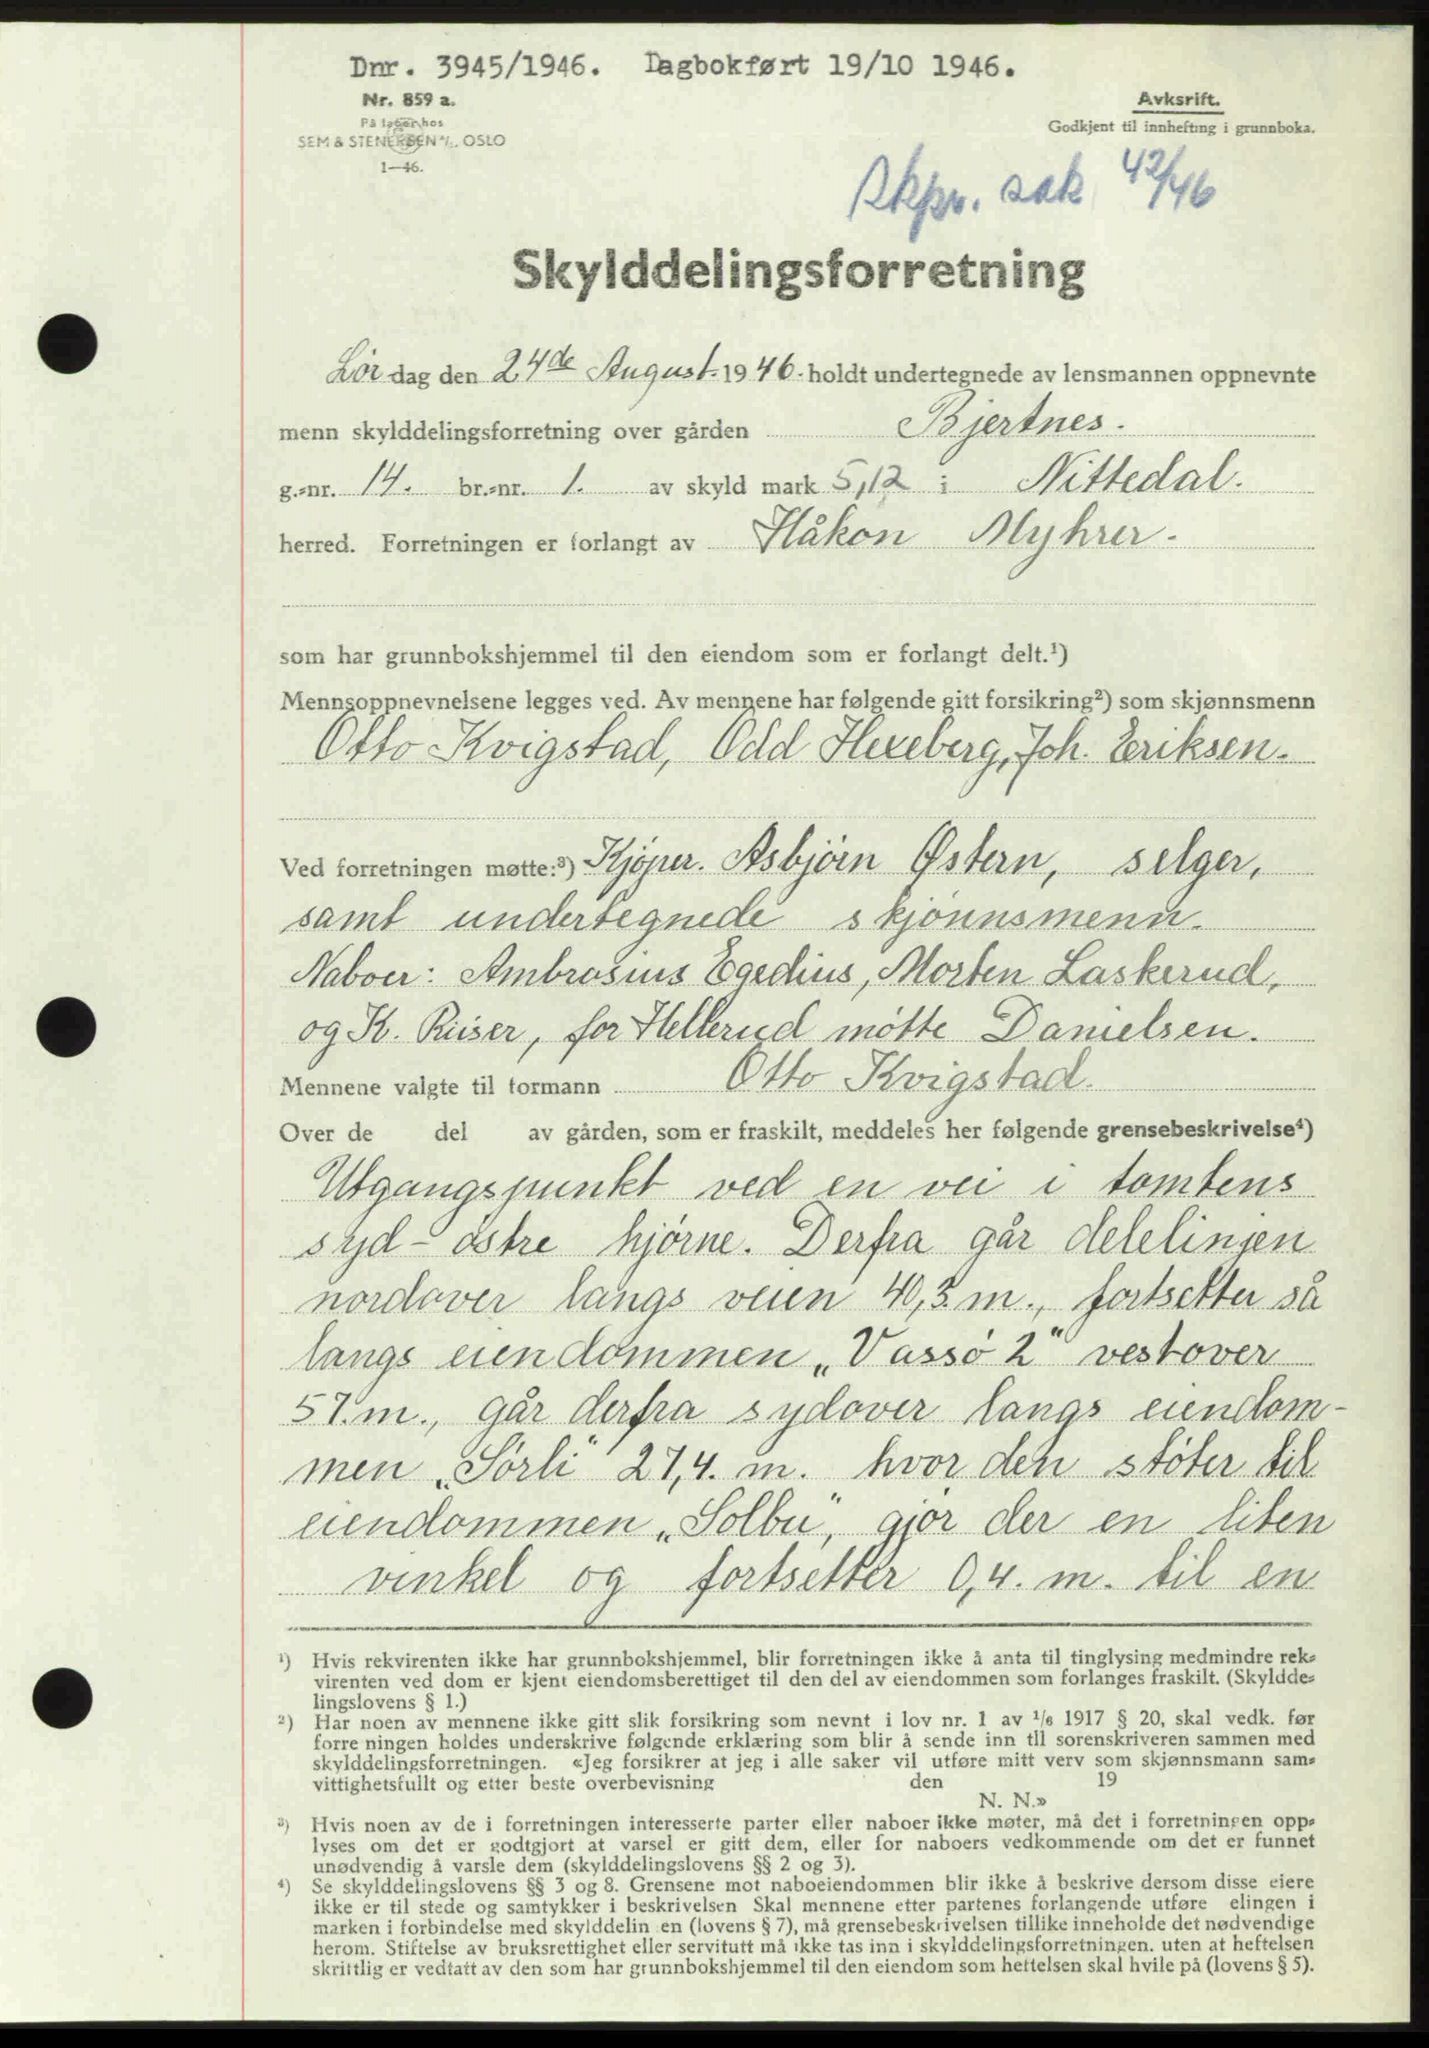 Dnr. 3945/1946. Dagbokført 19/10 1946.
Nr. 859 a.
På lager hos
SEM & STENERSEN A/S, OSLO
1—46.
Avksrift.
Godkjent til innhefting i grunnboka.
Skpr. sak 42/46
Skylddelingsforretning
Lør dag den 24de August 1946. holdt undertegnede av lensmannen oppnevnte
menn skylddelingsforretning over gården Bjertnes.
g.-nr. 14. br.-nr. 1. av skyld mark 5,12 i Nittedal.
herred. Forretningen er forlangt av Håkon Myhrer.
som har grunnbokshjemmel til den eiendom som er forlangt delt.¹)
Mennsoppnevnelsene legges ved. Av mennene har følgende gitt forsikring²) som skjønnsmenn
Otto Kvigstad, Odd Hexeberg, Joh. Eriksen.
Ved forretningen møtte:³) Kjøper. Asbjørn Østern, selger,
samt undertegnede skjønnsmenn.
Naboer: Ambrosius Egedius, Morten Laskerud,
og K. Ruiser, for Hellerud møtte Danielsen.
Mennene valgte til formann Otto Kvigstad.
Over de del av gården, som er fraskilt, meddeles her følgende grensebeskrivelse⁴)
Utgangspunkt ved en vei i tomtens
syd-østre hjørne. Derfra går delelinjen
nordover langs veien 40,3. m., fortsetter så
langs eiendommen „Vassø 2" vestover
57. m., går derfra sydover langs eiendom-
men „Sørli" 27,4. m. hvor den støter til
eiendommen „Solbu", gjør der en liten
vinkel og fortsetter 0,4. m. til en
¹) Hvis rekvirenten ikke har grunnbokshjemmel, blir forretningen ikke å anta til tinglysing medmindre rek-
virenten ved dom er kjent eiendomsberettiget til den del av eiendommen som forlanges fraskilt. (Skyldde-
lingslovens § 1.)
²) Har noen av mennene ikke gitt slik forsikring som nevnt i lov nr. 1 av 1/6 1917 § 20, skal vedk. før
forre ningen holdes underskrive følgende erklæring som blir å sende inn til sorenskriveren sammen med
skylddelingsforretningen. «Jeg forsikrer at jeg i alle saker vil utføre mitt verv som skjønnsmann sam-
vittighetsfullt og etter beste overbevisning den 19
N. N.»
³) Hvis noen av de i forretningen interesserte parter eller naboer ikke møter, må det i forretningen opp-
lyses om det er godtgjort at varsel er gitt dem, eller for naboers vedkommende om det er funnet
unødvendig å varsle dem (skylddelingslovens §§ 2 og 3).
⁴) Se skylddelingslovens §§ 3 og 8. Grensene mot naboeiendommen blir ikke å beskrive dersom disse eiere
ikke er til stede og samtykker i beskrivelsen Skal mennene etter partenes forlangende utføre elingen i
marken i forbindelse med skylddelin en (lovens § 7), må grensebeskrivelsen tillike inneholde det nødvendige
herom. Stiftelse av bruksrettighet eller servitutt må ikke tas inn i skylddelingsforretningen. uten at heftelsen
skriftlig er vedtatt av den som har grunnbokshjemmel til den eiendom som heftelsen skal hvile på (lovens § 5).